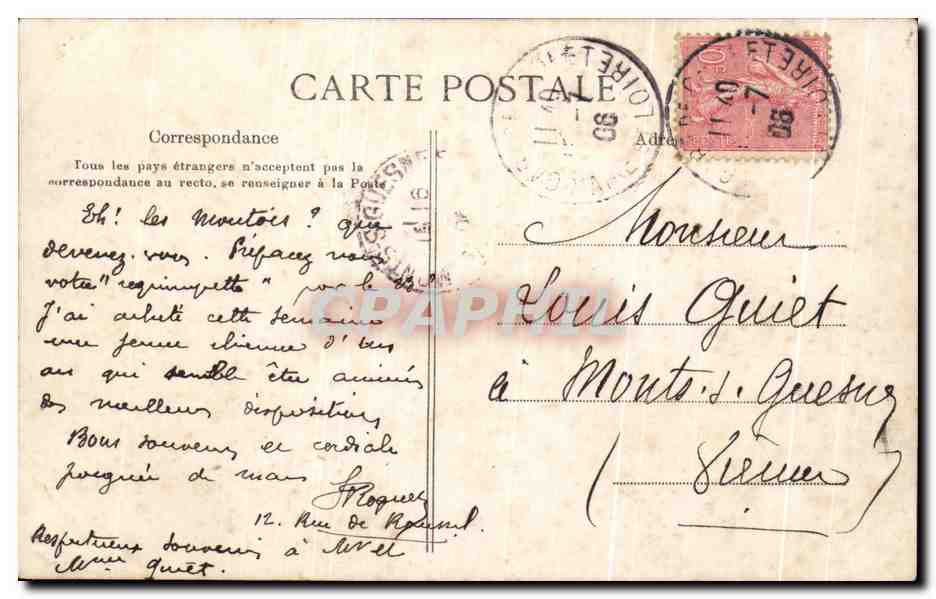 CARTE POSTALE
Correspondance
Tous les pays étrangers n'acceptent pas la
correspondance au recto, se renseigner à la Poste
Eh! les Montois? que
devenez-vous. Préparez nous
votre " requinquette " pour le
J'ai acheté cette semaine
une jeune chienne d'un
an qui semble être animés
des meilleurs dispositions
Bons souvenirs et cordiale
poignée de mains
Roguet
12. Rue de
Respectueux souvenirs à M et
Mme Guiet.
Adre
Monsieur
Louis Guiet
à Monts. s. Guesnes
(Vienne)
LOIRET
11 40
-7
06
LOIRET
11 40
-7
06
CPAPHIL